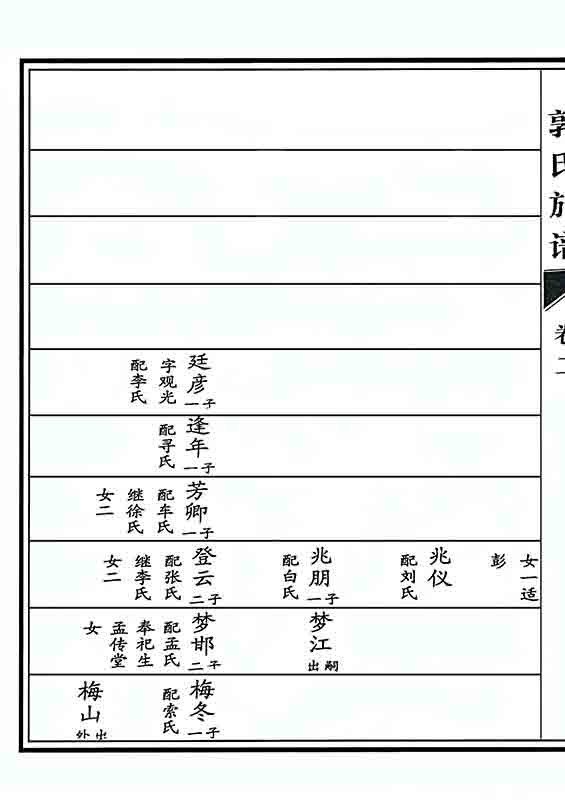 郭氏族谱
卷二
廷彦
一子
字观光
配李氏
逢年
一子
配寻氏
芳卿
一子
配车氏
继徐氏
女二
女一适
彭
兆仪
配刘氏
兆朋
一子
配白氏
登云
二子
配张氏
继李氏
女二
梦江
出嗣
梦邯
二子
配孟氏
奉祀生
孟传堂
女
梅冬
一子
配索氏
梅山
出外